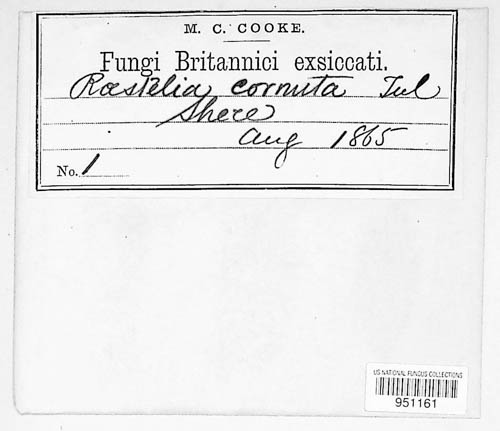 M. C. COOKE.
Fungi Britannici exsiccati.
Rœstelia cornuta Tul
Shere
Aug 1865
No. 1
US NATIONAL FUNGUS COLLECTIONS
951161